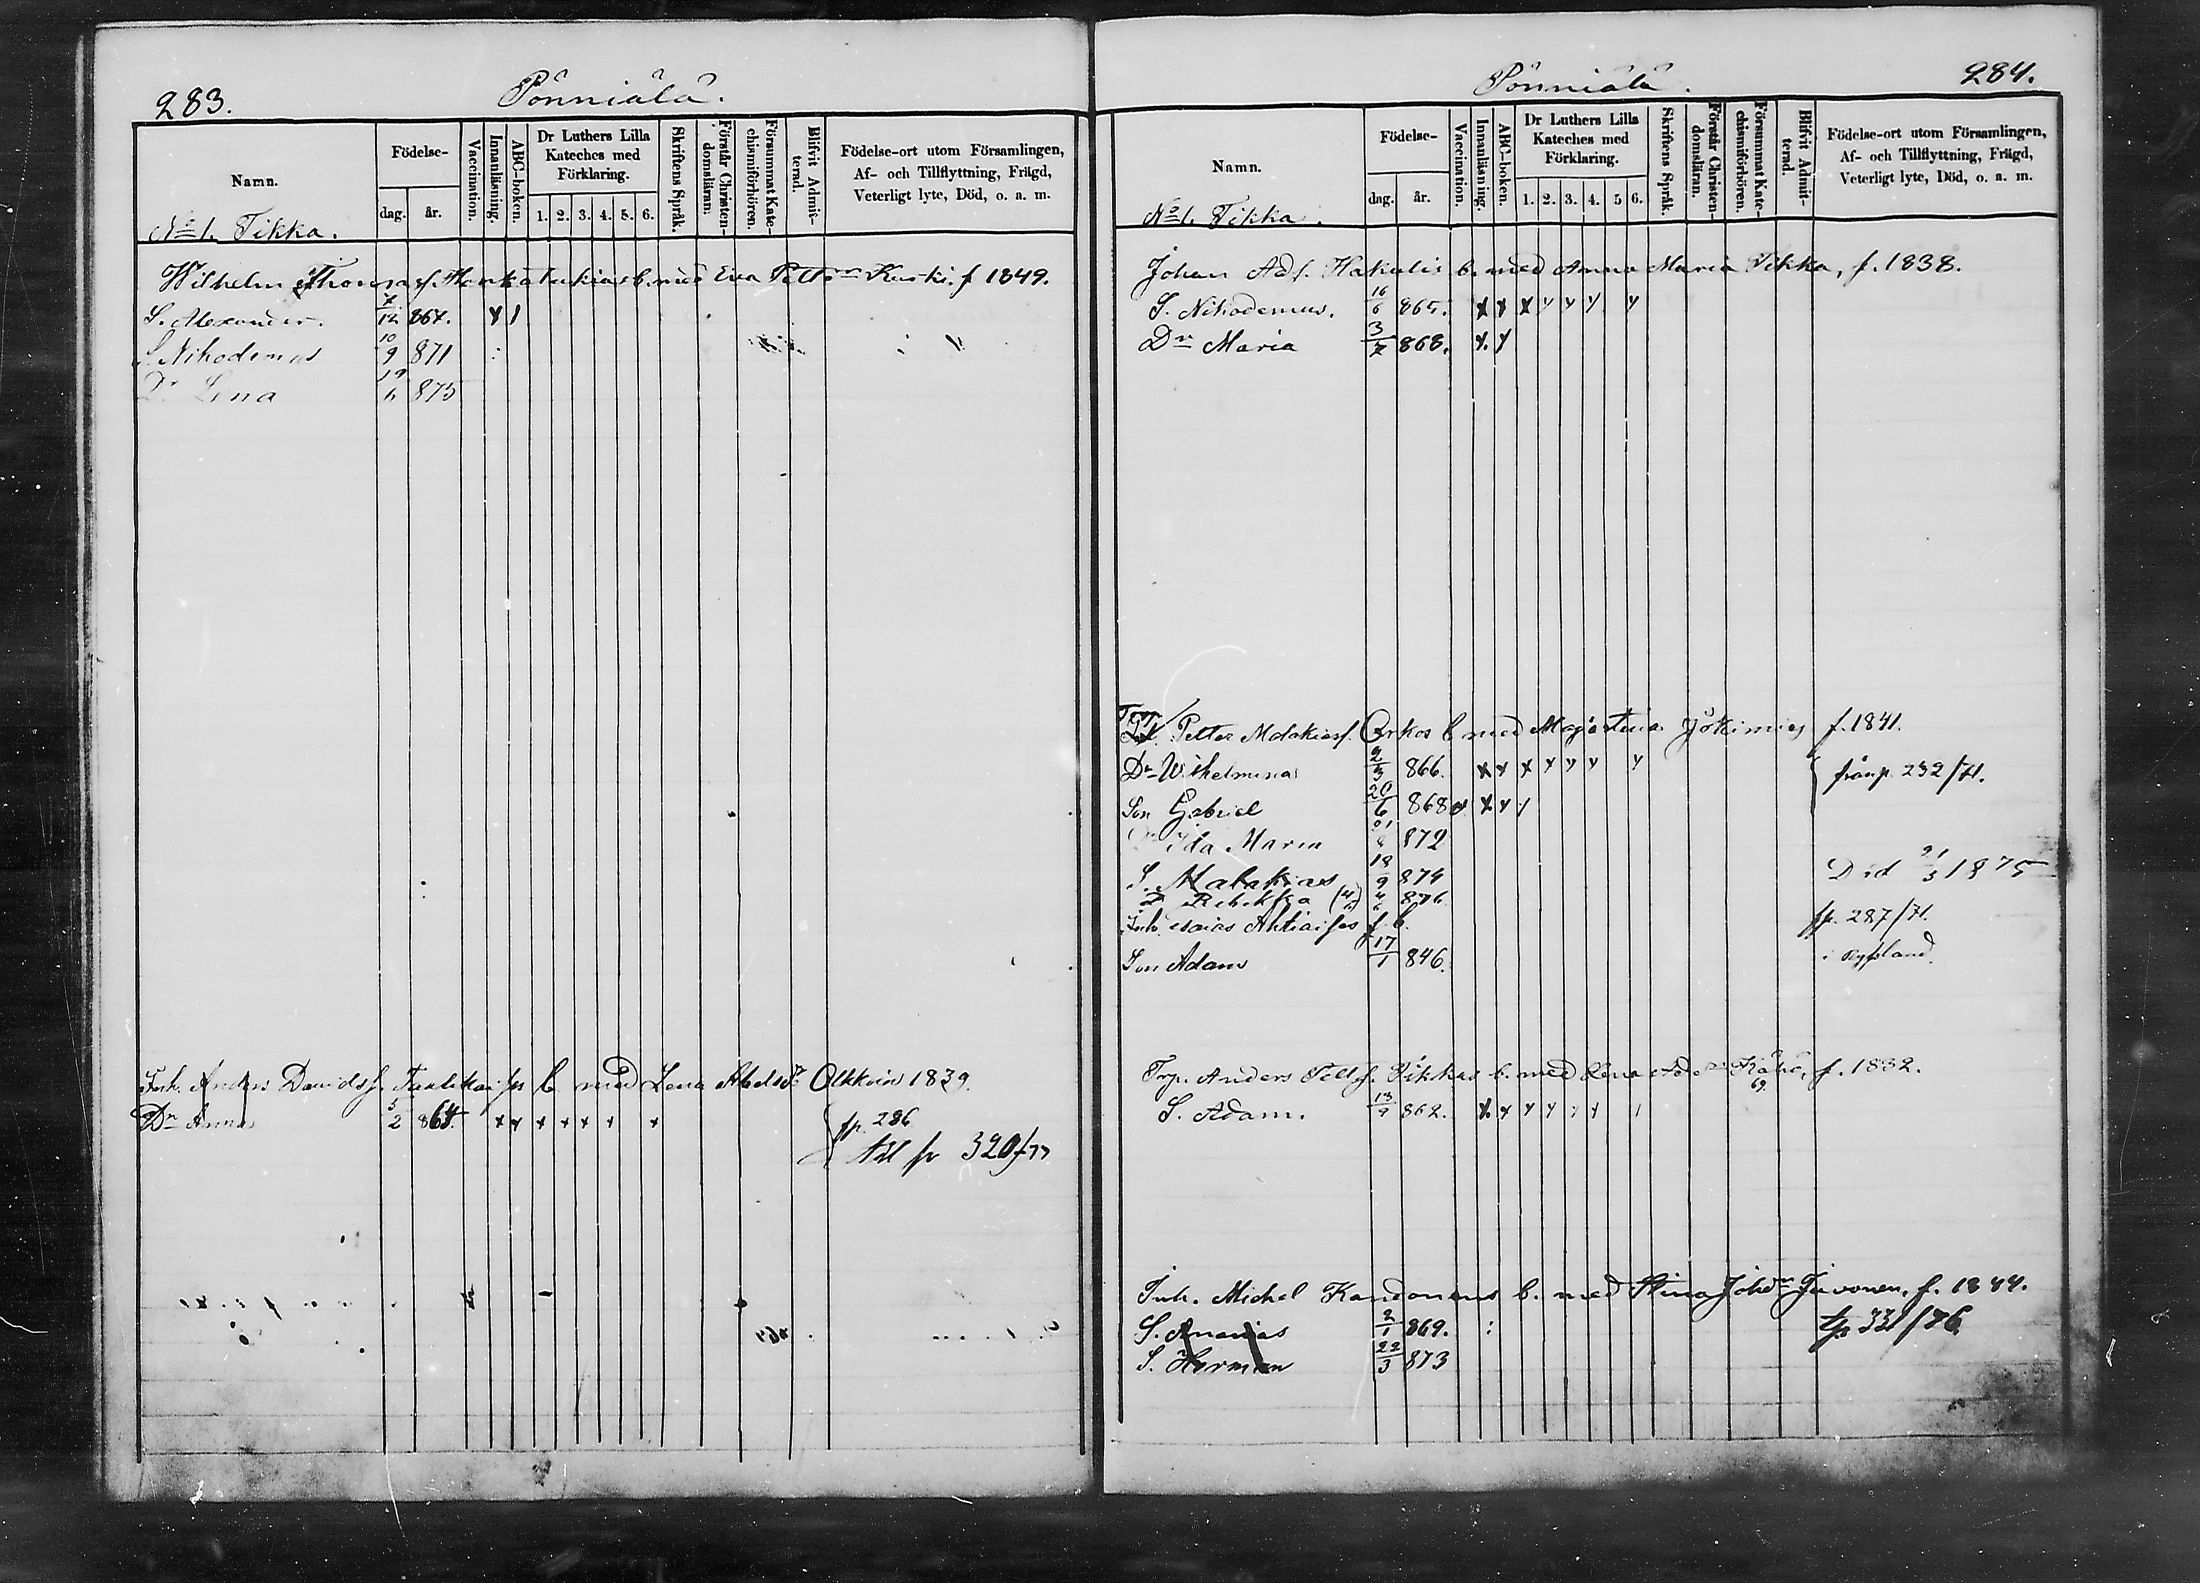 283.
Pönniälä.
Namn.
Födelse-
dag.
år.
Vaccination.
Innanläsning.
ABC-boken.
Dr Luthers Lilla
Kateches med
Förklaring.
1. 2. 3. 4. 5. 6.
Skriftens Språk.
Förstår Christen-
domsläran.
Försummat Kate-
chismiförhören.
Blifvit Admit-
terad.
Födelse-ort utom Församlingen,
Af- och Tillflyttning, Frägd,
Veterligt lyte, Död, o. a. m.
No 1. Tikka.
Wilhelm b. med Eva Kurki. f 1849.
S. Alexander. 7/12 867. x 1
S. Nikodemus 10/9 871
Dr Lena 19/6 875
Inh. Anders Davidss. b med Lena Abelsdr Olkkoin 1829.
Dr Anna 5/2 864. x x x x x x x fp. 286
till p 320/77
284.
Pönniälä.
Namn.
Födelse-
dag.
år.
Vaccination.
Innanläsning.
ABC-boken.
Dr Luthers Lilla
Kateches med
Förklaring.
1. 2. 3. 4. 5 6.
Skriftens Språk.
Förstår Christen-
domsläran.
Försummat Kate-
chismiförhören.
Blifvit Admit-
terad.
Födelse-ort utom Församlingen,
Af- och Tillflyttning, Frägd,
Veterligt lyte, Död, o. a. m.
No 1. Tikka.
Johan Ads. Hakulis b. med Anna Maria Tikka, f. 1838.
S. Nikodemus. 16/6 865. x x x y y y y
Dr Maria 3/7 868. x. y
Petter Malakiass. Orkos b med f. 1841.
Dr Wilhelmina 2/3 866. x x x y y y y från p. 232/71.
Son Gabriel 20/6 868
Ida Maria 872
S. Malakias 18/9 874 Död 21/3 1875
D Rebekka 876
Inh. Esaias f. b. fp. 287/71.
Son Adam 17/1 846. i Ryssland.
Trp. Anders Pett.s. Tikkas b. med Lena f. 1832.
S. Adam. 13/9 862.
Inh. Michel Kandonens b. med Stina Johdr Juvonen, f. 1844.
S. Ananias 2/1 869. : tp 331/76.
S. Herman 22/3 873